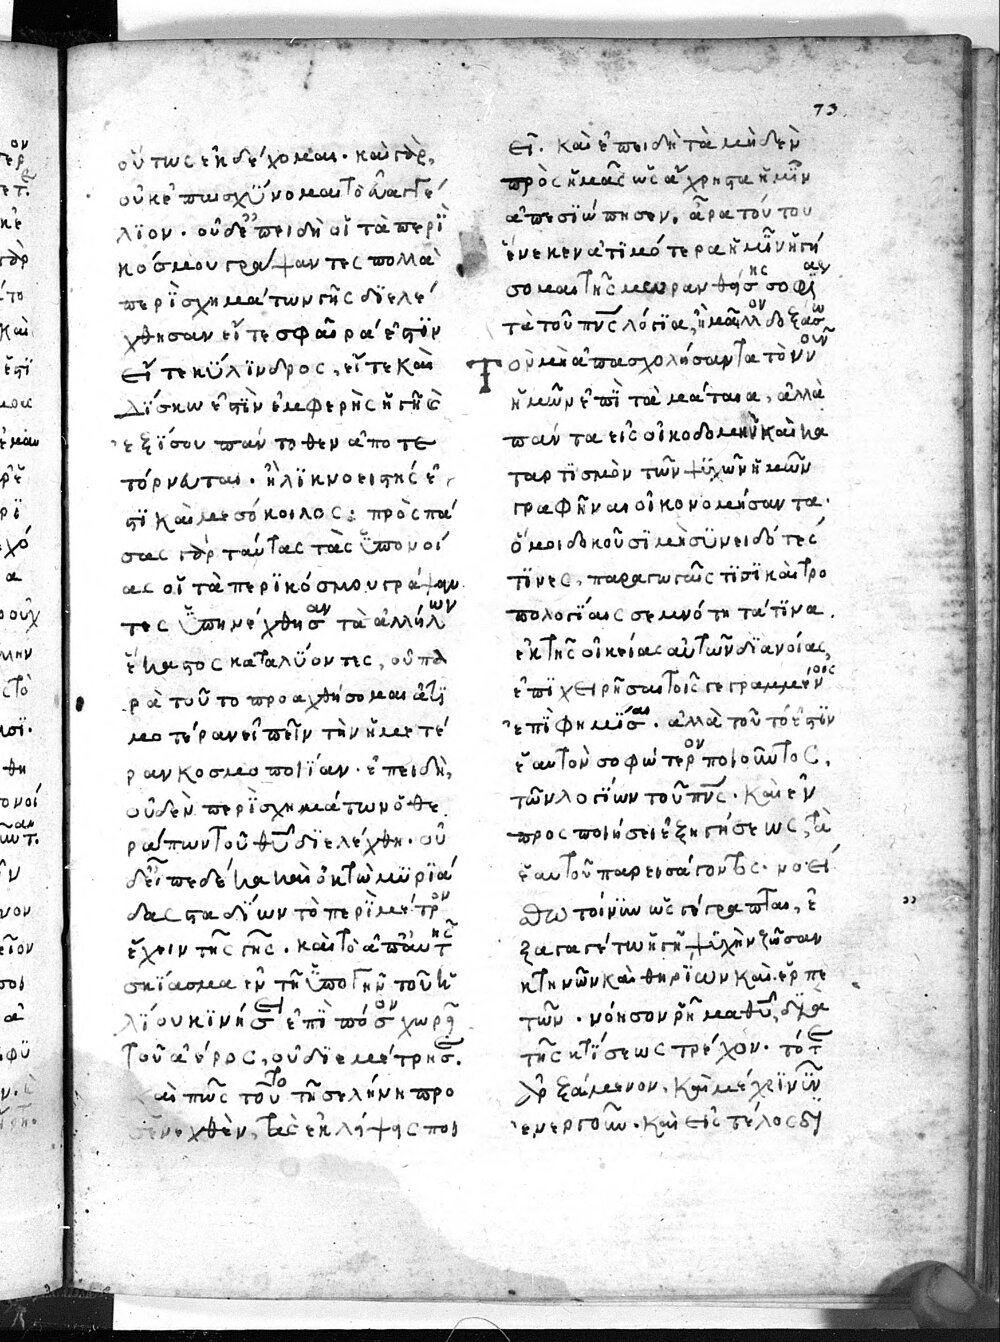 οὕτως ἐκδέχομαι. καὶ γὰρ,
οὐκ ἐπαισχύνομαι τὸ εὐαγγέ
λιον. οὐδ' ἐπειδὴ οἱ τὰ περὶ
κόσμου γράψαντες πολλὰ
περὶ σχημάτων γῆς διελέ
χθησαν εἴτε σφαῖρά ἐστιν
εἴτε κύλινδρος, εἴτε καὶ
δίσκω ἐστὶν ἐμφερὴς ἡ γῆ
ἐξίσου πάντοθεν ἀποτε
τόρνωται. ἢ λικνοειδής ἐ
στι καὶ μεσόκοιλος: πρὸς πά
σας γὰρ ταύτας τὰς ὑπονοί
ας οἱ τὰ περὶ κόσμου γράψαν
τες ὑπηνέχθησαν τὰ ἀλλήλων
ἕκαστος καταλύοντες, οὐ πα
ρὰ τοῦτο προαχθήσομαι ἀτι
μοτέραν εἰπεῖν τὴν ἡμετέ
ραν κοσμοποιΐαν. ἐπειδὴ,
οὐδὲν περὶ σχημάτων ὁ θε
ράπων τοῦ θυ διελέχθη. οὐ
δὲ εἶπε δέκα καὶ ὀκτὼ μυριά
δας σταδίων τὸ περίμετρον
ἔχειν τῆς γῆς. καὶ τὸ ἀπ αὐτῆς
σκίασμα ἐν τῆ ὑπὸ γῆν τοῦ ἡ
λίου κινήσει ἐπὶ πόσον χωρεῖ
τοῦ ἀέρος, οὐ διεμέτρησε.
καὶ πῶς τοῦτο τῆ σελήνη προ
σενεχθὲν, τὰς ἐκλείψεις ποι
73
εῖ. καὶ ἐπειδὴ τὰ μηδὲν
πρὸς ἡμᾶς ὡς ἄχρηστα ἡμῖν
ἀπεσιώπησεν, ἆρα τούτου
ἕνεκεν ἀτιμότερα ἡμῖν ἡγή
σομαι τῆς μωρανθείσης σοφίας
τὰ τοῦ πνς λόγια, ἢ μᾶλλον δοξάσω
Τὸν μὴ ἀπασχολήσαντα τὸν νοῦν
ἡμῶν ἐπὶ τὰ μάταια, ἀλλὰ
πάντα εἰς οἰκοδομὴν καὶ κα
ταρτισμὸν τῶν ψυχῶν ἡμῶν
γραφῆναι οἰκονομήσαντα.
ὅ μοι δοκοῦσι μὴ συνειδότές
τινες, παραγωγαῖς τισὶ καὶ τρο
πολογίαις σεμνότητά τινα
ἐκ τῆς οἰκείας αὐτῶν διανοίας,
ἐπιχειρῆσαι τοῖς γεγραμμένοις
ἐπιφημίσαι. ἀλλὰ τοῦτό ἐστιν
ἑαυτὸν σοφώτερον ποιοῦντος,
τῶν λογίων τοῦ πνς. καὶ ἐν
προσποιήσει ἐξηγήσεως, τὰ
ἑαυτοῦ παρεισάγοντος. νοεί
σθω τοίνυν ὡς γέγραπται, ἐ
ξαγαγέτω ἡ γῆ, ψυχὴν ζῶσαν
κτηνῶν καὶ θηρίων καὶ ἑρπε
τῶν. νόησον ῥῆμα θυ, διὰ
τῆς κτίσεως τρέχον. τότε
ἀρξάμενον, καὶ μέχρι νῦν
ἐνεργοῦν. καὶ εἰς τέλος δι